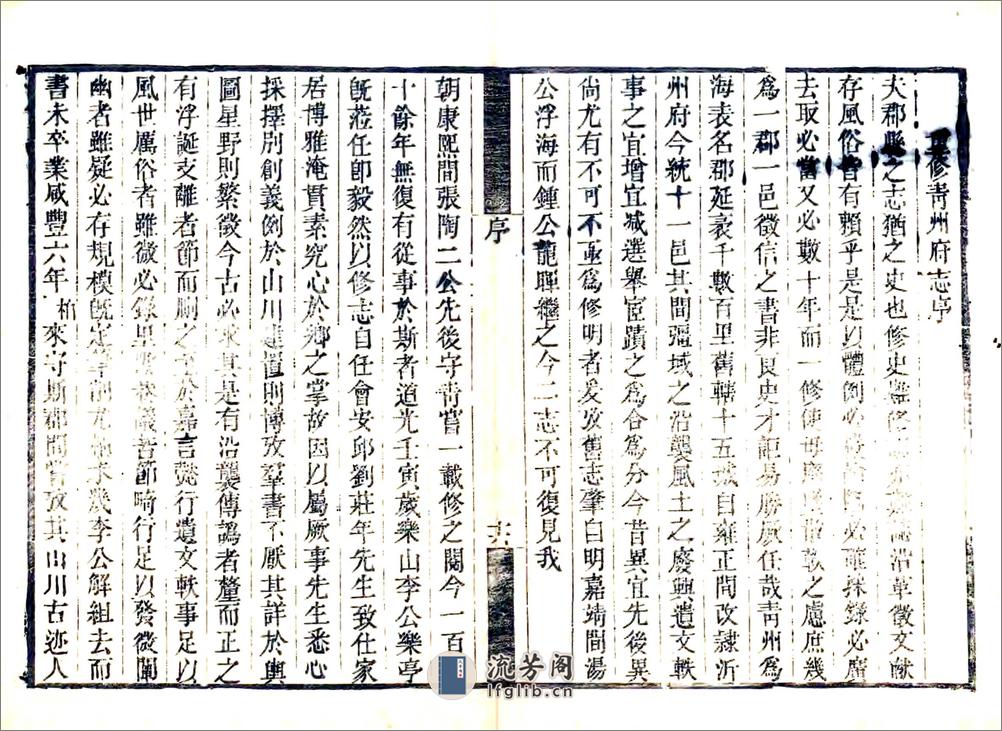 修靑州府志序
夫郡縣之志猶之史也修史難修志亦難沿革徵文獻
存風俗皆有賴乎是是以體例必 必確採錄必廣
去取必當又必數十年而一修使毋 之慮庶幾
爲一郡一邑徵信之書非良史才詎易勝厥任哉靑州爲
海表名郡延袤千數百里舊轄十五城自雍正間改隸沂
州府今統十一邑其間疆域之沿襲風土之廢興遺文軼
事之宜增宜減選舉宦蹟之爲合爲分今昔異宜先後異
尚尤有不可不亟爲修明者爰攷舊志肇自明嘉靖間湯
公浮海而鍾公龍暉繼之今二志不可復見我
序
朝康熙間張陶二公先後守靑嘗一載修之閱今一百
十餘年無復有從事於斯者道光壬寅歲樂山李公樂亭
旣蒞任卽毅然以修志自任會安邱劉莊年先生致仕家
居博雅淹貫素究心於鄉之掌故因以屬厥事先生悉心
採擇別創義例於山川建置則博攷羣書不厭其詳於輿
圖星野則繁徵今古必求其是有沿襲傳譌者釐而正之
有浮誕支離者節而刪之至於嘉言懿行遺文軼事足以
風世厲俗者雖微必錄里 義苦節畸行足以發微闡
幽者雖疑必存規模旣定筆削尤 求幾李公解組去而
書未卒業咸豐六年 柏 來守斯郡間嘗攷其山川古迹人
流芳阁
lfglib.cn